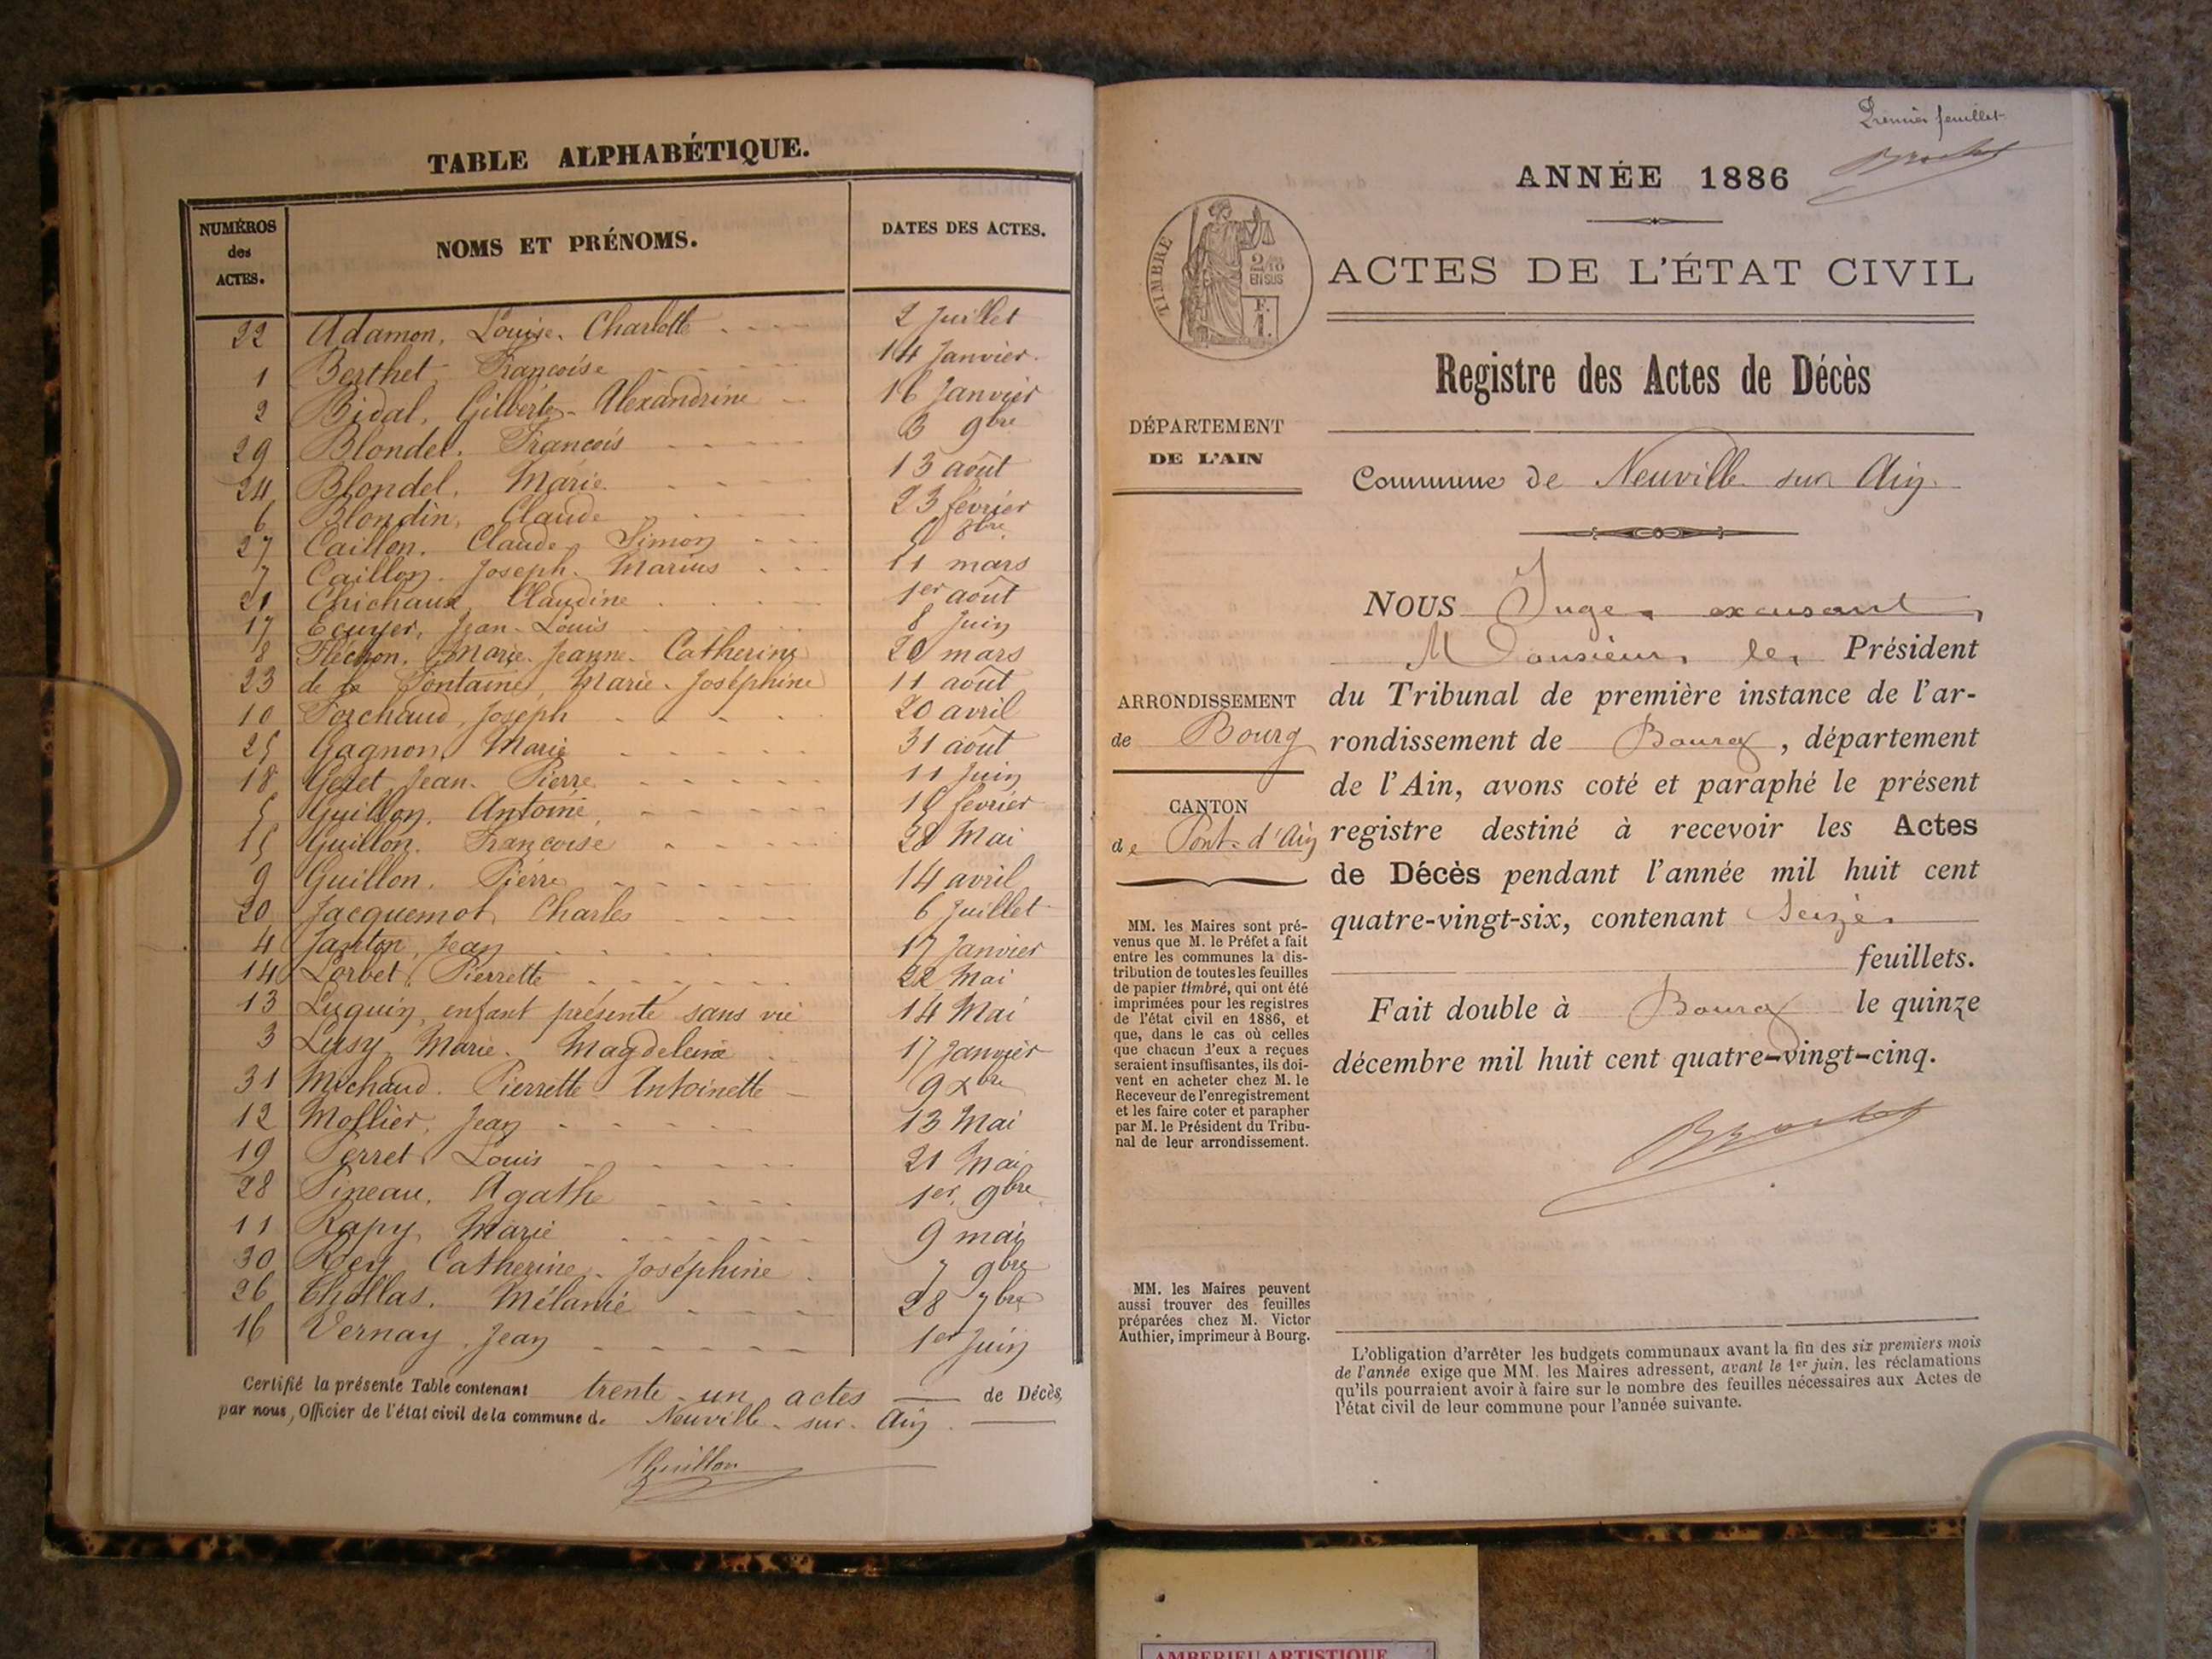 TABLE ALPHABÉTIQUE.
NUMÉROS des ACTES. NOMS ET PRÉNOMS. DATES DES ACTES.
22 Adamon, Louise-Charlotte 2 Juillet
1 Berthet Françoise 14 Janvier
2 Bidal, Gilberte-Alexandrine 16 Janvier
29 Blondel, François 3 9bre
24 Blondel, Marie 13 août
6 Blondin, Claude 23 février
27 Caillon, Claude-Simon 8bre
7 Caillon, Joseph-Marius 11 mars
21 Chichaux Claudine 1er août
17 Ecuyer, Jean-Louis 8 Juin
8 Fléchon, Marie-Jeanne-Catherine 20 mars
23 de la Fontaine, Marie-Joséphine 11 août
10 Forchaud, Joseph 20 avril
25 Gagnon, Marie 31 août
18 Jean-Pierre 11 Juin
5 Guillon, Antoine, février
15 Guillon, Françoise 28 Mai
9 Guillon, Pierre 14 avril
20 Jacquemot, Charles 6 Juillet
4 Janton, Jean 17 Janvier
14 Lorbet, Pierrette 22 Mai
13 Luguin, enfant présenté sans vie 14 Mai
3 Lusy, Marie-Magdeleine 17 Janvier
31 Michaud, Pierrette Antoinette 9 Xbre
12 Mollier, Jean 13 Mai
19 Perret Louis 21 Mai
28 Pineau, Agathe 1er 9bre
11 Rapy, Marie 9 mai
30 Rey, Catherine-Joséphine 7 9bre
26 Thollas, Mélanie 28 7bre
16 Vernay, Jean 1er Juin
Certifié la présente Table contenant trente-un actes de Décès,
par nous, Officier de l'état civil de la commune de Neuville-sur-Ain.
Guillon
Premier feuillet
ANNÉE 1886
TIMBRE
2/10
EN SUS
F.
1.
ACTES DE L'ÉTAT CIVIL
Registre des Actes de Décès
DÉPARTEMENT
DE L'AIN
Commune de Neuville sur Ain.
NOUS Juge, excusant,
Monsieur le Président
du Tribunal de première instance de l'ar-
rondissement de Bourg, département
de l'Ain, avons coté et paraphé le présent
registre destiné à recevoir les Actes
de Décès pendant l'année mil huit cent
quatre-vingt-six, contenant Seize
feuillets.
Fait double à Bourg le quinze
décembre mil huit cent quatre-vingt-cinq.
ARRONDISSEMENT
de Bourg
CANTON
de Pont-d'Ain
MM. les Maires sont pré-
venus que M. le Préfet a fait
entre les communes la dis-
tribution de toutes les feuilles
de papier timbré, qui ont été
imprimées pour les registres
de l'état civil en 1886, et
que, dans le cas où celles
que chacun d'eux a reçues
seraient insuffisantes, ils doi-
vent en acheter chez M. le
Receveur de l'enregistrement
et les faire coter et parapher
par M. le Président du Tribu-
nal de leur arrondissement.
MM. les Maires peuvent
aussi trouver des feuilles
préparées chez M. Victor
Authier, imprimeur à Bourg.
L'obligation d'arrêter les budgets communaux avant la fin des six premiers mois
de l'année exige que MM. les Maires adressent, avant le 1er juin, les réclamations
qu'ils pourraient avoir à faire sur le nombre des feuilles nécessaires aux Actes de
l'état civil de leur commune pour l'année suivante.
AMBERIEU ARTISTIQUE